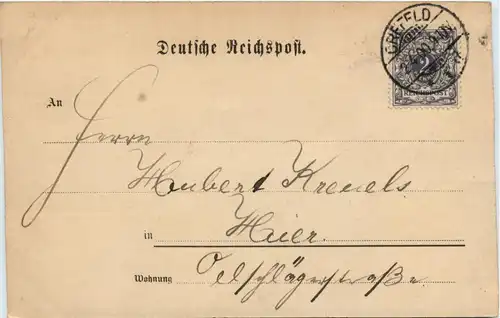 CREFELD
Deutsche Reichspost.
2
REICHSPOST
An
Herrn
Hubert Kreuels
in Hier.
Wohnung Oelschlägerstraße